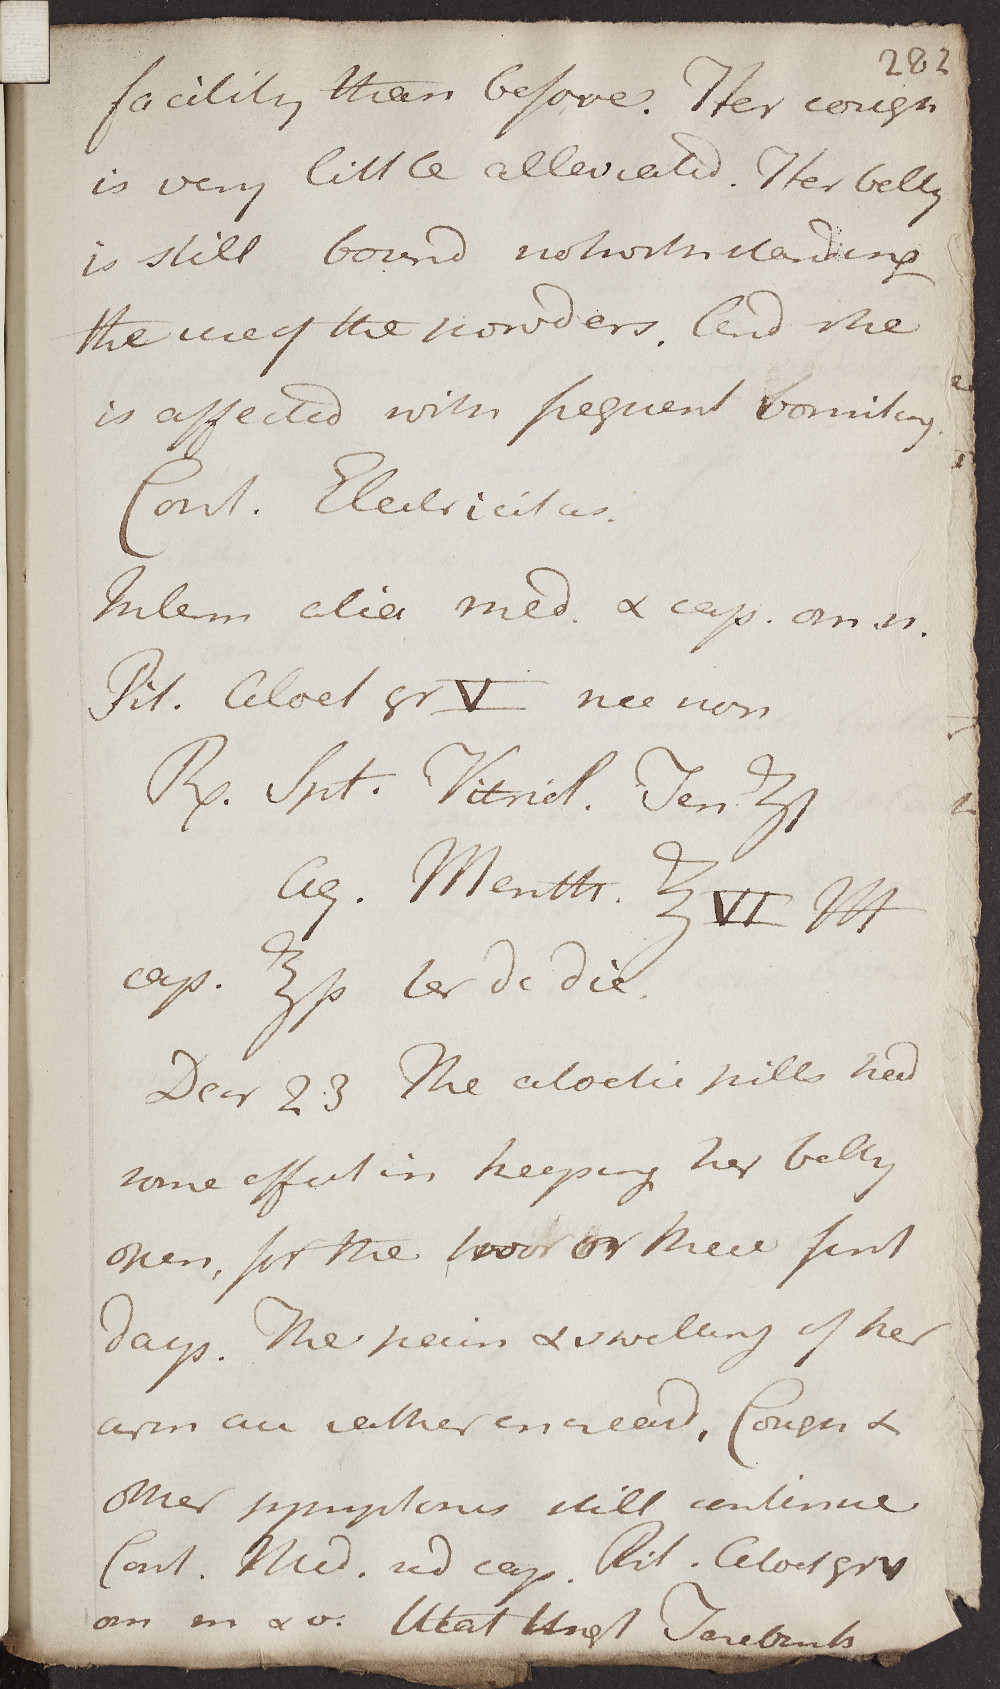 282
facility than before. Her cough
is very little alleviated. Her belly
is still bound notwithstanding
the use of the powders. And she
is affected with frequent vomiting.
Cont. Electricitas.
Intem alia med. & cap. om. n.
Pil. Aloet gr V nec non
Rx. Spt. Vitriol. Ten. ʒi
Aq. Menth. ℥VI M
cap. ℥ß ter de die.
Decr 23 The aloetic pills had
some effect in keeping her belly
open, for the two or three first
days. The pain & swelling of her
arm are rather encreasd, Cough &
other symptoms still continue
Cont. Med. sed cap. Pil. Aloet gr v
om m & v. Utat Ungt Terebinth